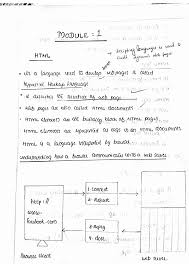 MODULE : 1
Scripting language is used to
build dynamic web pages
HTML
It's a language used to develop web pages is called
Hypertext Markup Language
It defines the structure of web page
Web pages are also called HTML documents
HTML elements are the building blocks of HTML pages
HTML elements are represented by
HTML is a language interpreted by browser
Understanding how a browser communicates with a web server
1 connect
2 request
http://
www.
facebook.com
3 reply
4 close
Browser client
Web server